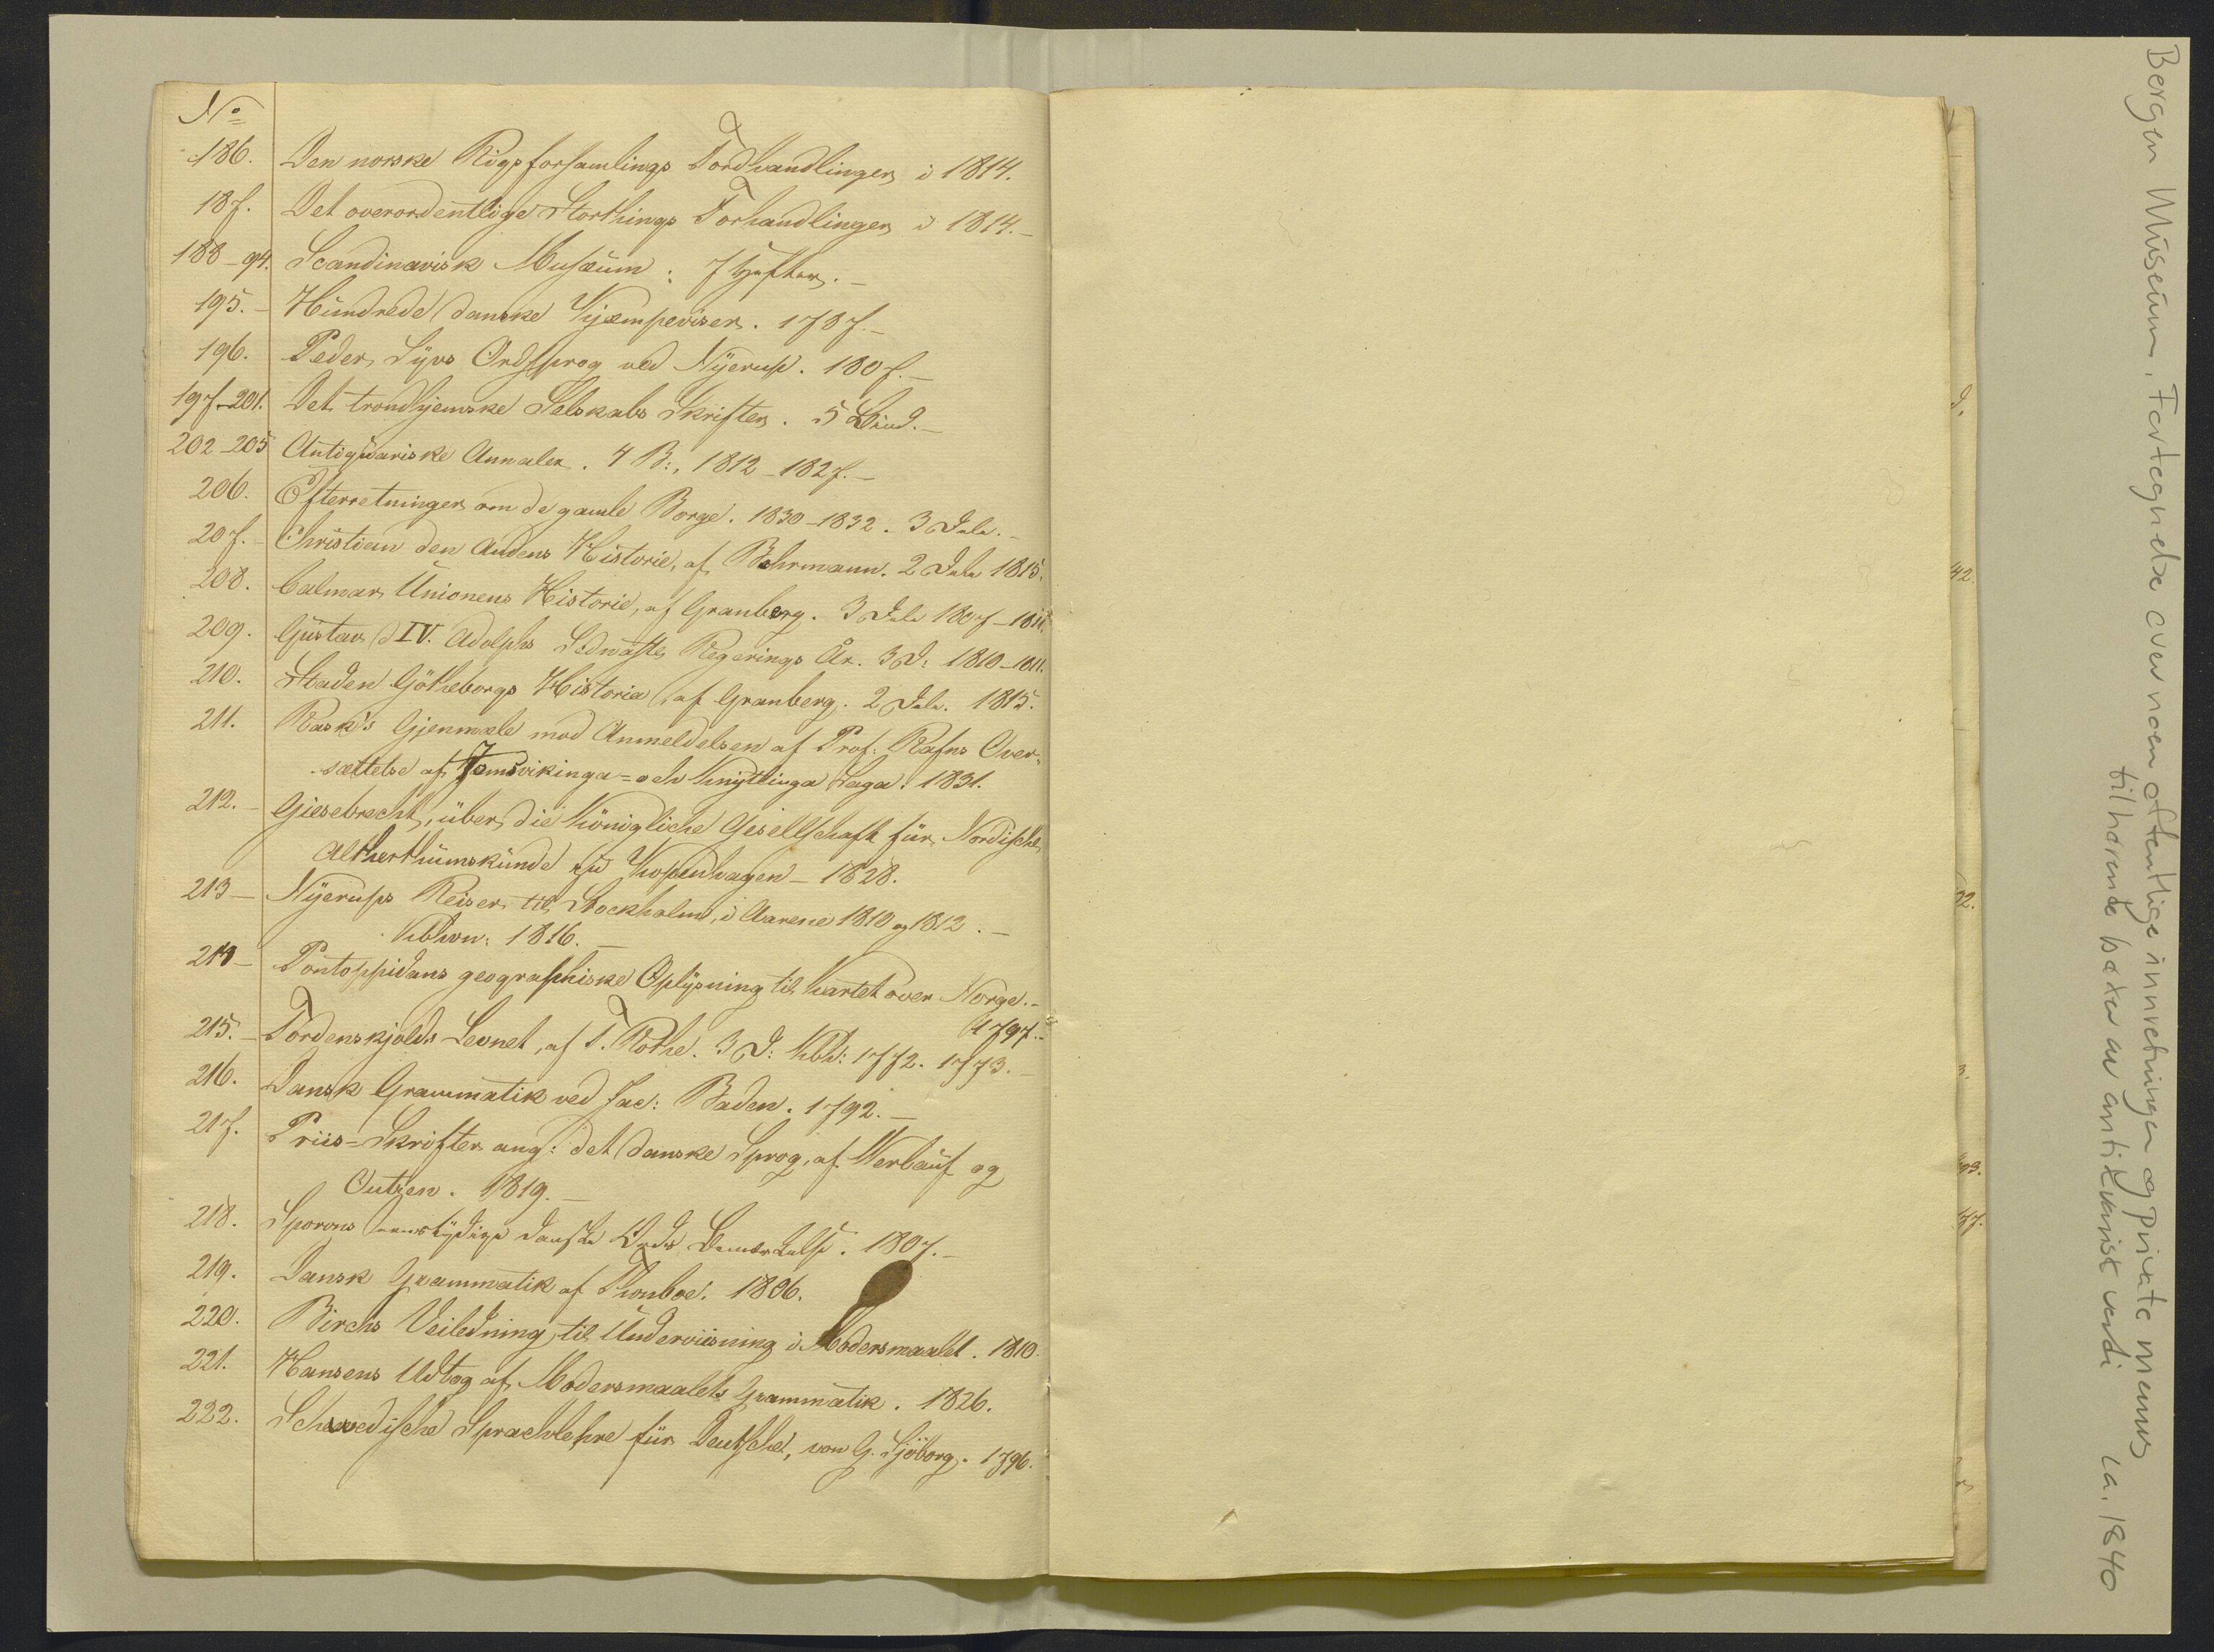 No
186. Den norske Rigsforsamlings Fordhandlinger i 1814.
187. Det overordentlige Storthings Forhandlinger i 1814.–
188–94. Scandinavisk Musæum: 7 Hefter.–
195.– Hundrede danske Kjæmpeviser. 1787.–
196. Peder Syvs Ordsprog ved Nyerup. 1807.–
197–201. Det trondhjemske Selskabs Skrifter. 5 Bind.–
202–205 Antiqvariske Annaler. 4 B:, 1812–1827.–
206. Efterretninger om de gamle Borge. 1830–1832. 3 Dele.–
207.– Christian den Andens Historie, af Behrmann. 2 Dele 1815.
208. Calmar Unionens Historie, af Granberg. 3 Dele 1807–1811.
209. Gustav d IV. Adolphs Sednaste Regerings År. 3 D: 1810–1811.
210. Staden Götheborgs Historia, af Granberg. 2 Dele. 1815.
211. Rask's Gjenmæle mod Anmeldelsen af Prof: Rafns Over-
sættelse af Jomsvikinga- och Knytlinga Saga. 1831.
212.– Giesebrecht, über die Königliche Gesellschaft für Nordische
Altherthumskunde zu Kopenhagen – 1828.
213 – Nyerups Reiser til Stockholm, i Aarene 1810 og 1812.–
Kbhvn: 1816.–
214 – Pontoppidans geographiske Oplysning til Kartet over Norge.–
1797.–
215.– Tordenskjolds Levnet, af T. Rothe. 3 D: Kbh: 1772. 1773.–
216. Dansk Grammatik ved Jac: Baden. 1792.–
217. Priis-Skrifter ang: det danske Sprog, af Werlauf og
Outzen. 1819.–
218. Sporons eenstydige danske Ords Bemærkelse. 1807.–
219. Dansk Grammatik af Thonboe. 1806.
220. Birchs Veiledning til Underviisning i Modersmaalet. 1810.
221. Hansens Udtog af Modersmaalets Grammatik. 1826.
222. Schwedische Sprachlehre für Deutsche, von G. Sjöborg. 1796.
d.
42.
22.
3.
93.
77.
Bergen Museum, Fortegnelse over noen offentlige innretninger og private menns
tilhørende bøker av antikvarisk verdi ca. 1840